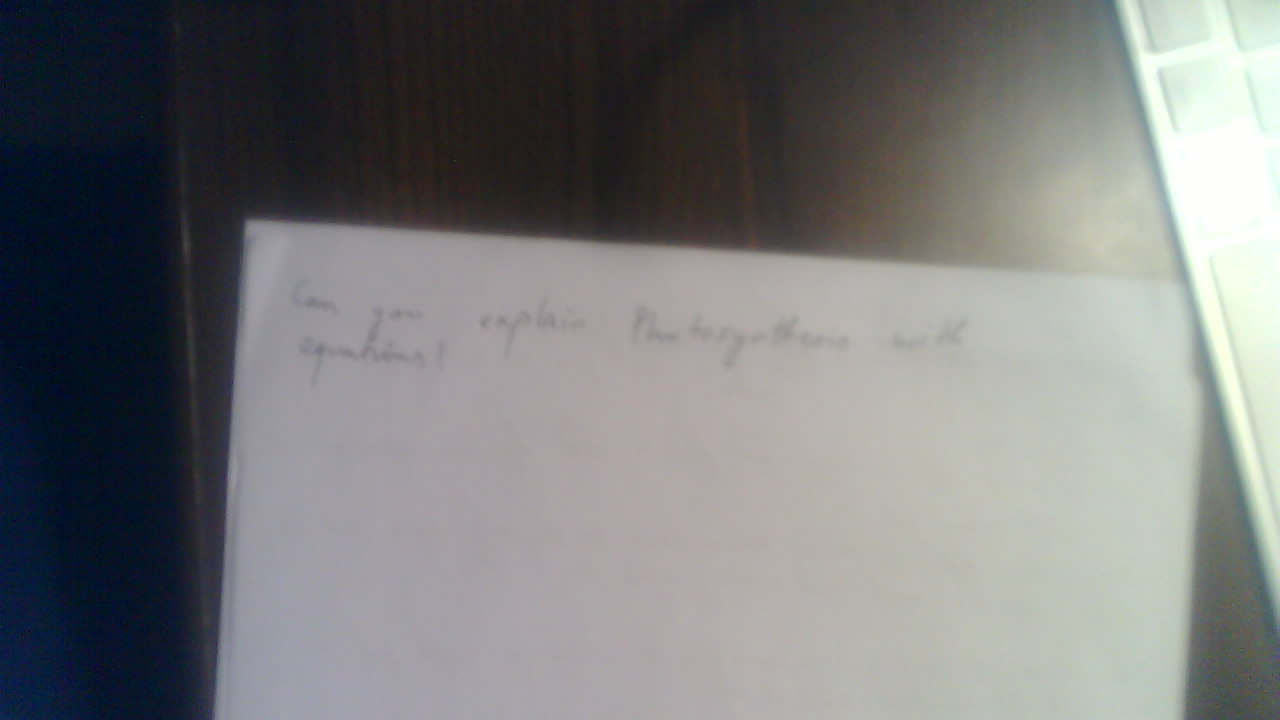 Can you explain Photosynthesis with
equations!